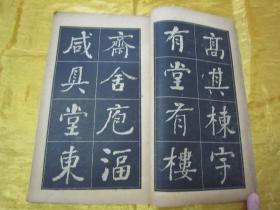 高其棟宇
有堂有樓
齋舍庖湢
咸具堂東